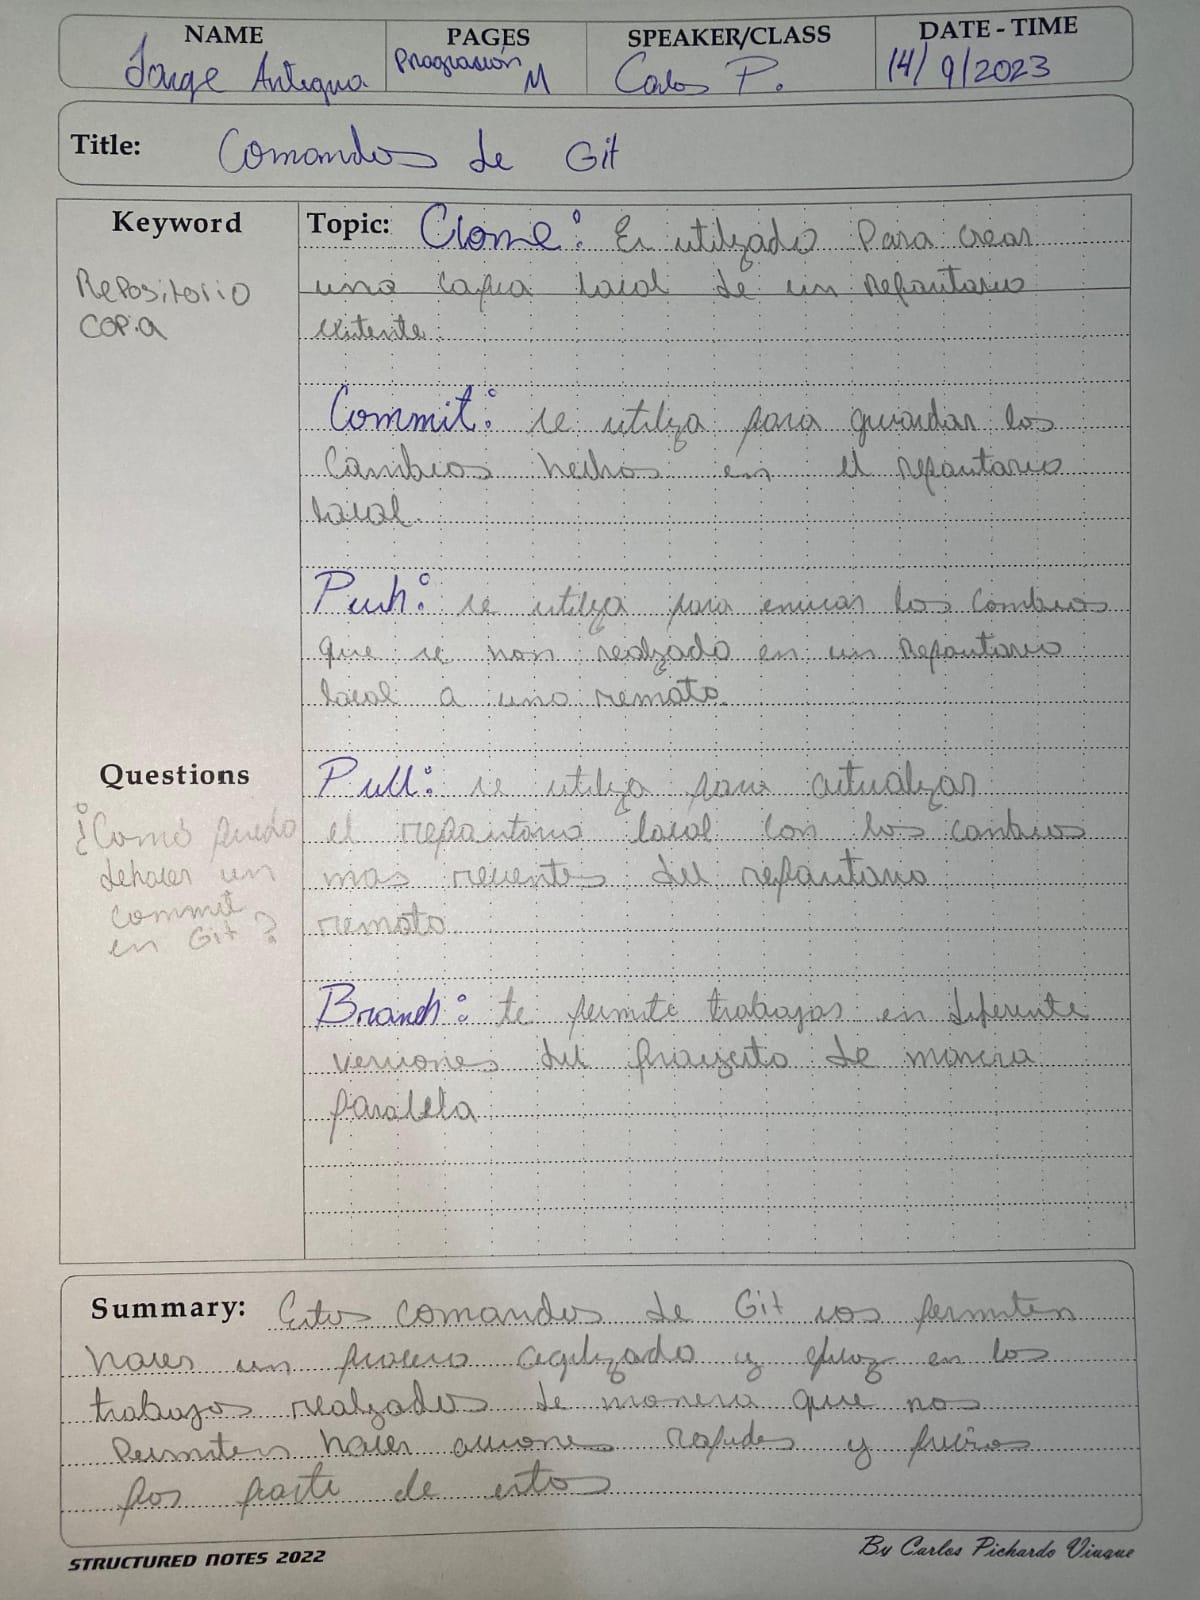 NAME PAGES SPEAKER/CLASS DATE - TIME
Jorge Antigua M Carlos P. 14/9/2023
Title: Comandos de Git
Keyword
Repositorio
COPia
Topic: Clone: Es utilizado Para crear
una copia local de un Repositorio
existente.
Commit: se utiliza para guardar los
Cambios hechos en el repositorio
local.
Push: se utiliza para enviar los Cambios
que se han realizado en un Repositorio
local a uno remoto.
Questions
¿Como puedo
dehacer un
commit
en Git?
Pull: se utiliza para actualizar
el repositorio local con los cambios
mas recientes del repositorio
remoto
Branch: te permite trabajar en diferente
versiones del proyecto de manera
paralela
Summary: Estos comandos de Git nos permiten
hacer un proceso agilizado y eficaz en los
trabajos realizados de manera que nos
Permiten hacer acciones rapidas y
por parte de estos
STRUCTURED NOTES 2022
By Carlos Pichardo Viuque